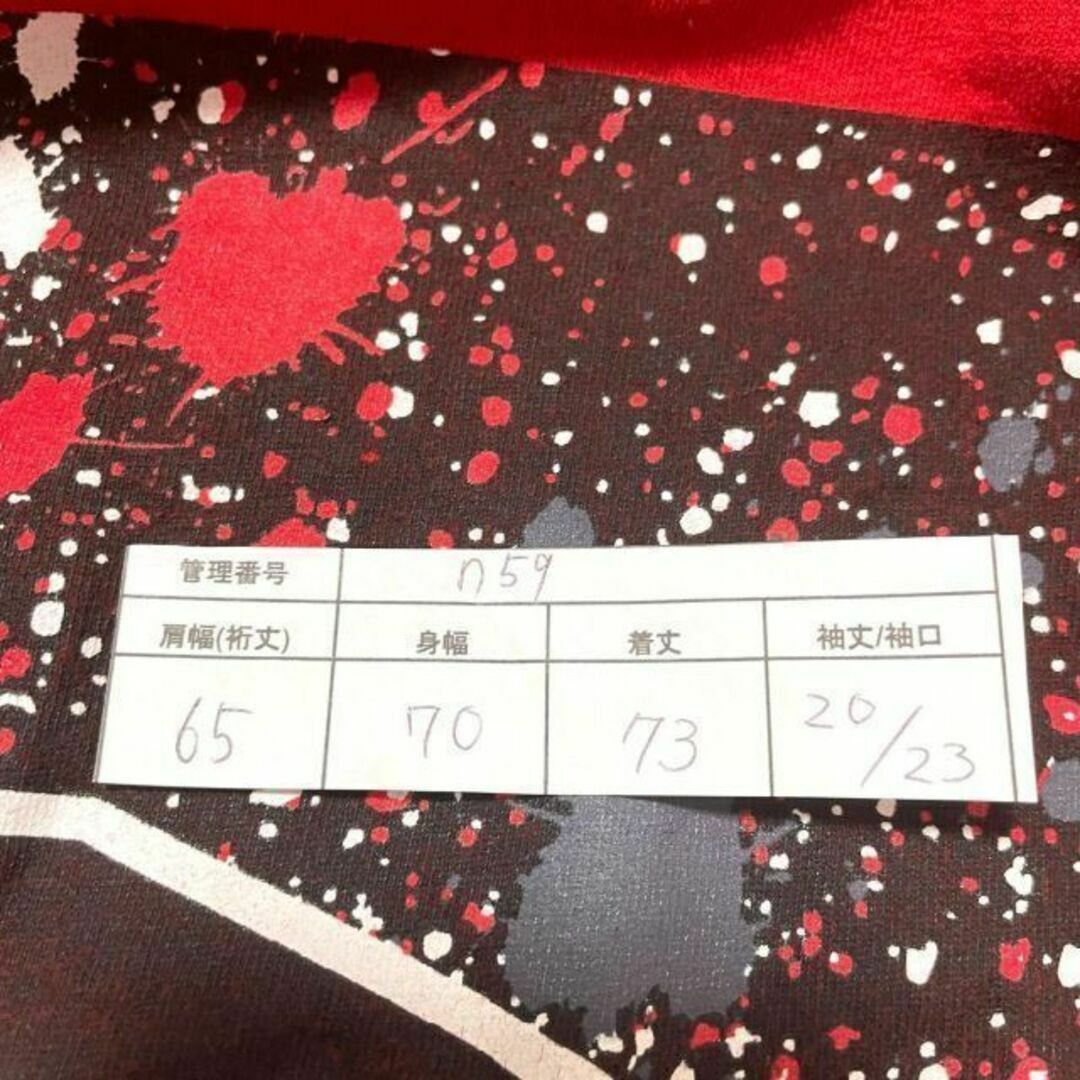 管理番号 n59
肩幅(裄丈) 身幅 着丈 袖丈/袖口
65 70 73 20/23